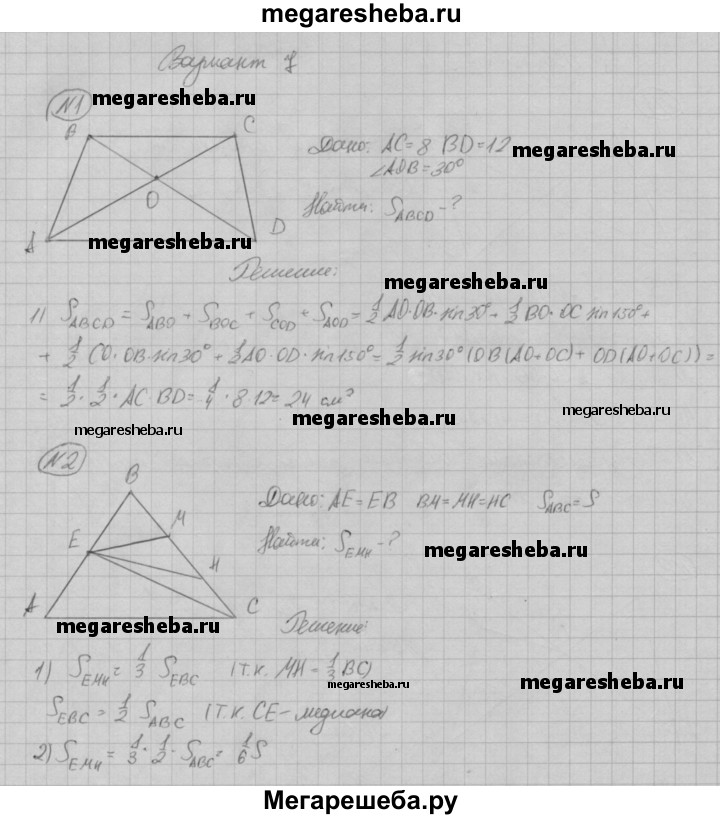 megaresheba.ru
Вариант 7
№1
megaresheba.ru
B C
O
A D
Дано: AC = 8 BD = 12
megaresheba.ru
∠AOB = 30°
Найти: S_ABCD - ?
megaresheba.ru
Решение:
megaresheba.ru
1) S_ABCD = S_ABO + S_BOC + S_COD + S_AOD = 1/2 AO·OB·sin 30° + 1/2 BO·OC sin 150° +
+ 1/2 CO·OB·sin 30° + 1/2 AO·OD·sin 150° = 1/2 sin 30° (OB(AO+OC) + OD(AO+OC)) =
= 1/2 · 1/2 · AC·BD = 1/4 · 8·12 = 24 см²
megaresheba.ru
megaresheba.ru
megaresheba.ru
№2
B
M
E
H
A C
Дано: AE = EB BM = MH = HC S_ABC = S
Найти: S_EMH - ?
megaresheba.ru
megaresheba.ru
Решение:
1) S_EMH = 1/3 S_EBC (т.к. MH = 1/3 BC)
megaresheba.ru
megaresheba.ru
S_EBC = 1/2 S_ABC (т.к. CE - медиана)
2) S_EMH = 1/3 · 1/2 · S_ABC = 1/6 S
Мегарешеба.ру